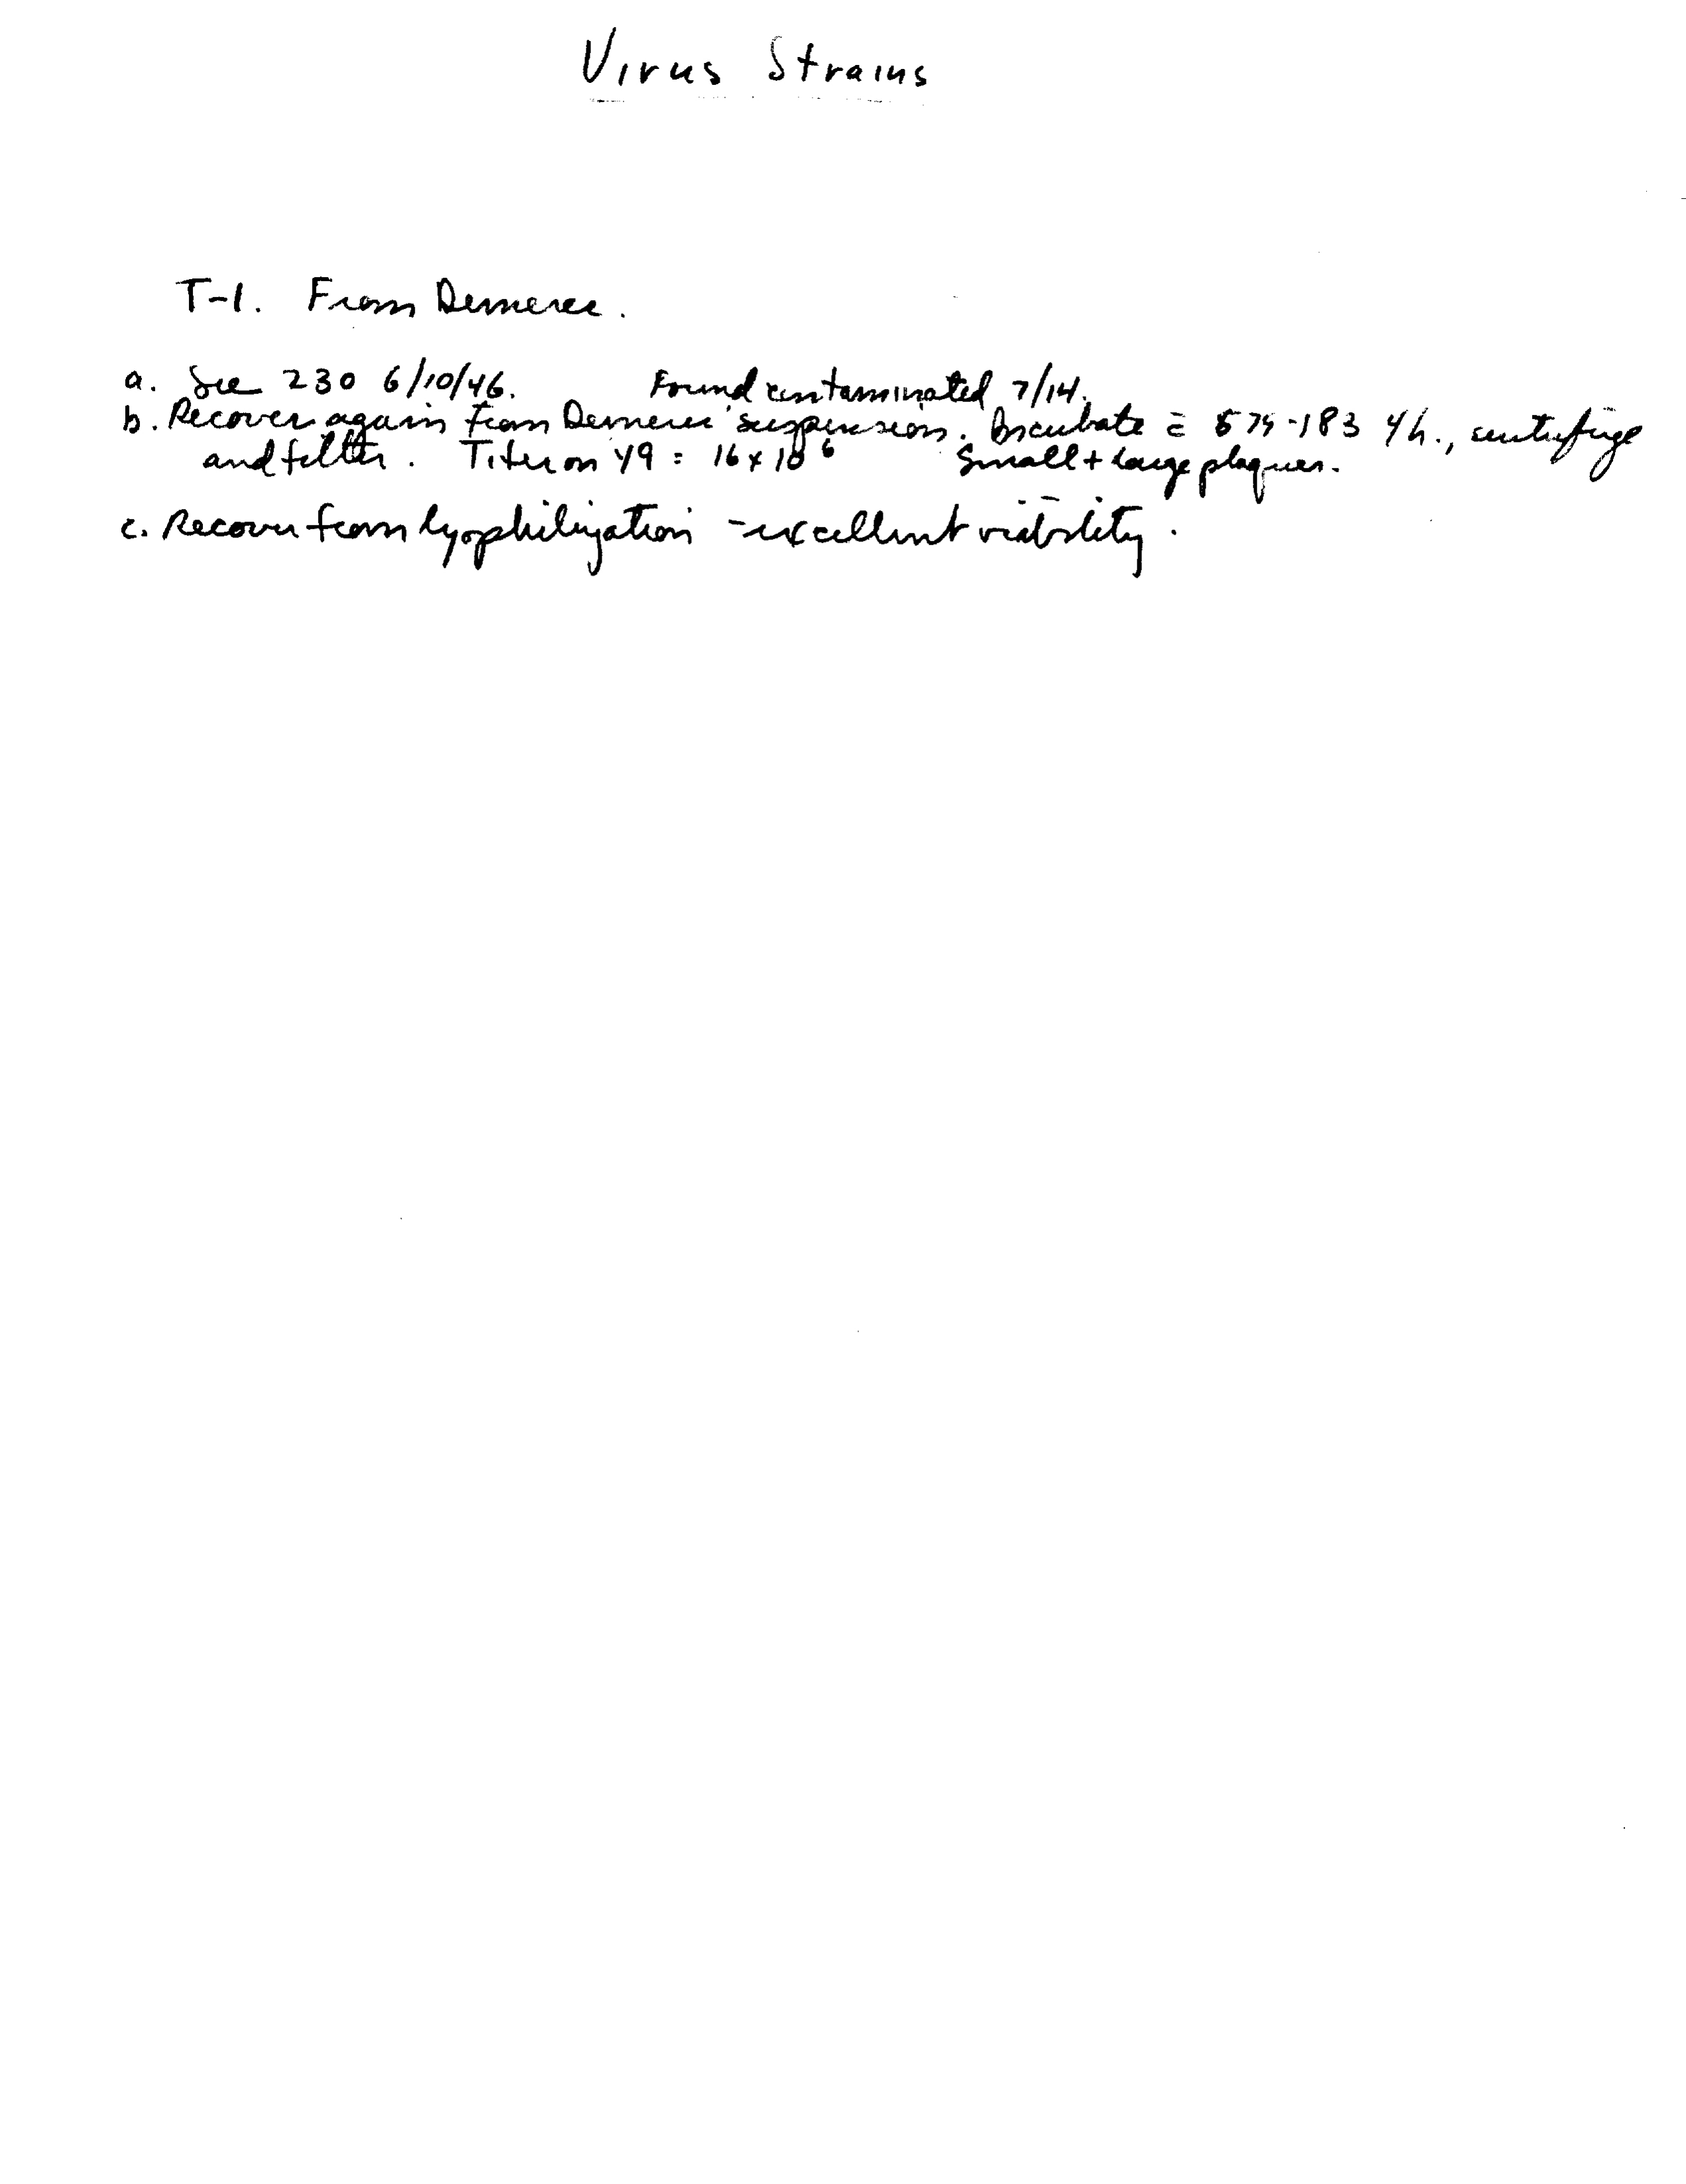 Virus Strains
T-1. From Demerec.
a. See 230 6/10/46. Found contaminated 7/14.
b. Recover again from Demerec' suspension. Incubate c̄ 679-183 4h., centrifuge
and filter. Titer on Y9 = 16 x 10⁶ Small + large plaques.
c. Recover from lyophilization - excellent viability.